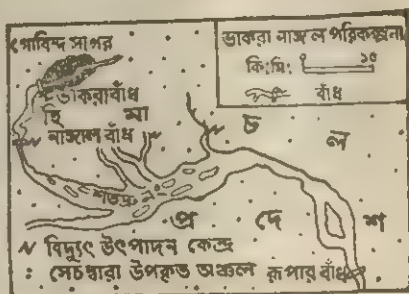 গোবিন্দ সাগর
ভাকরা নাঙ্গাল পরিকল্পনা
কি:মি: ০ ১৫
বাঁধ
ভাকরাবাঁধ
হি মা চ ল
নাঙ্গাল বাঁধ
শতদ্রু ন
প্র দে শ
বিদ্যুৎ উৎপাদন কেন্দ্র
: সেচদ্বারা উপকৃত অঞ্চল রূপার বাঁধ